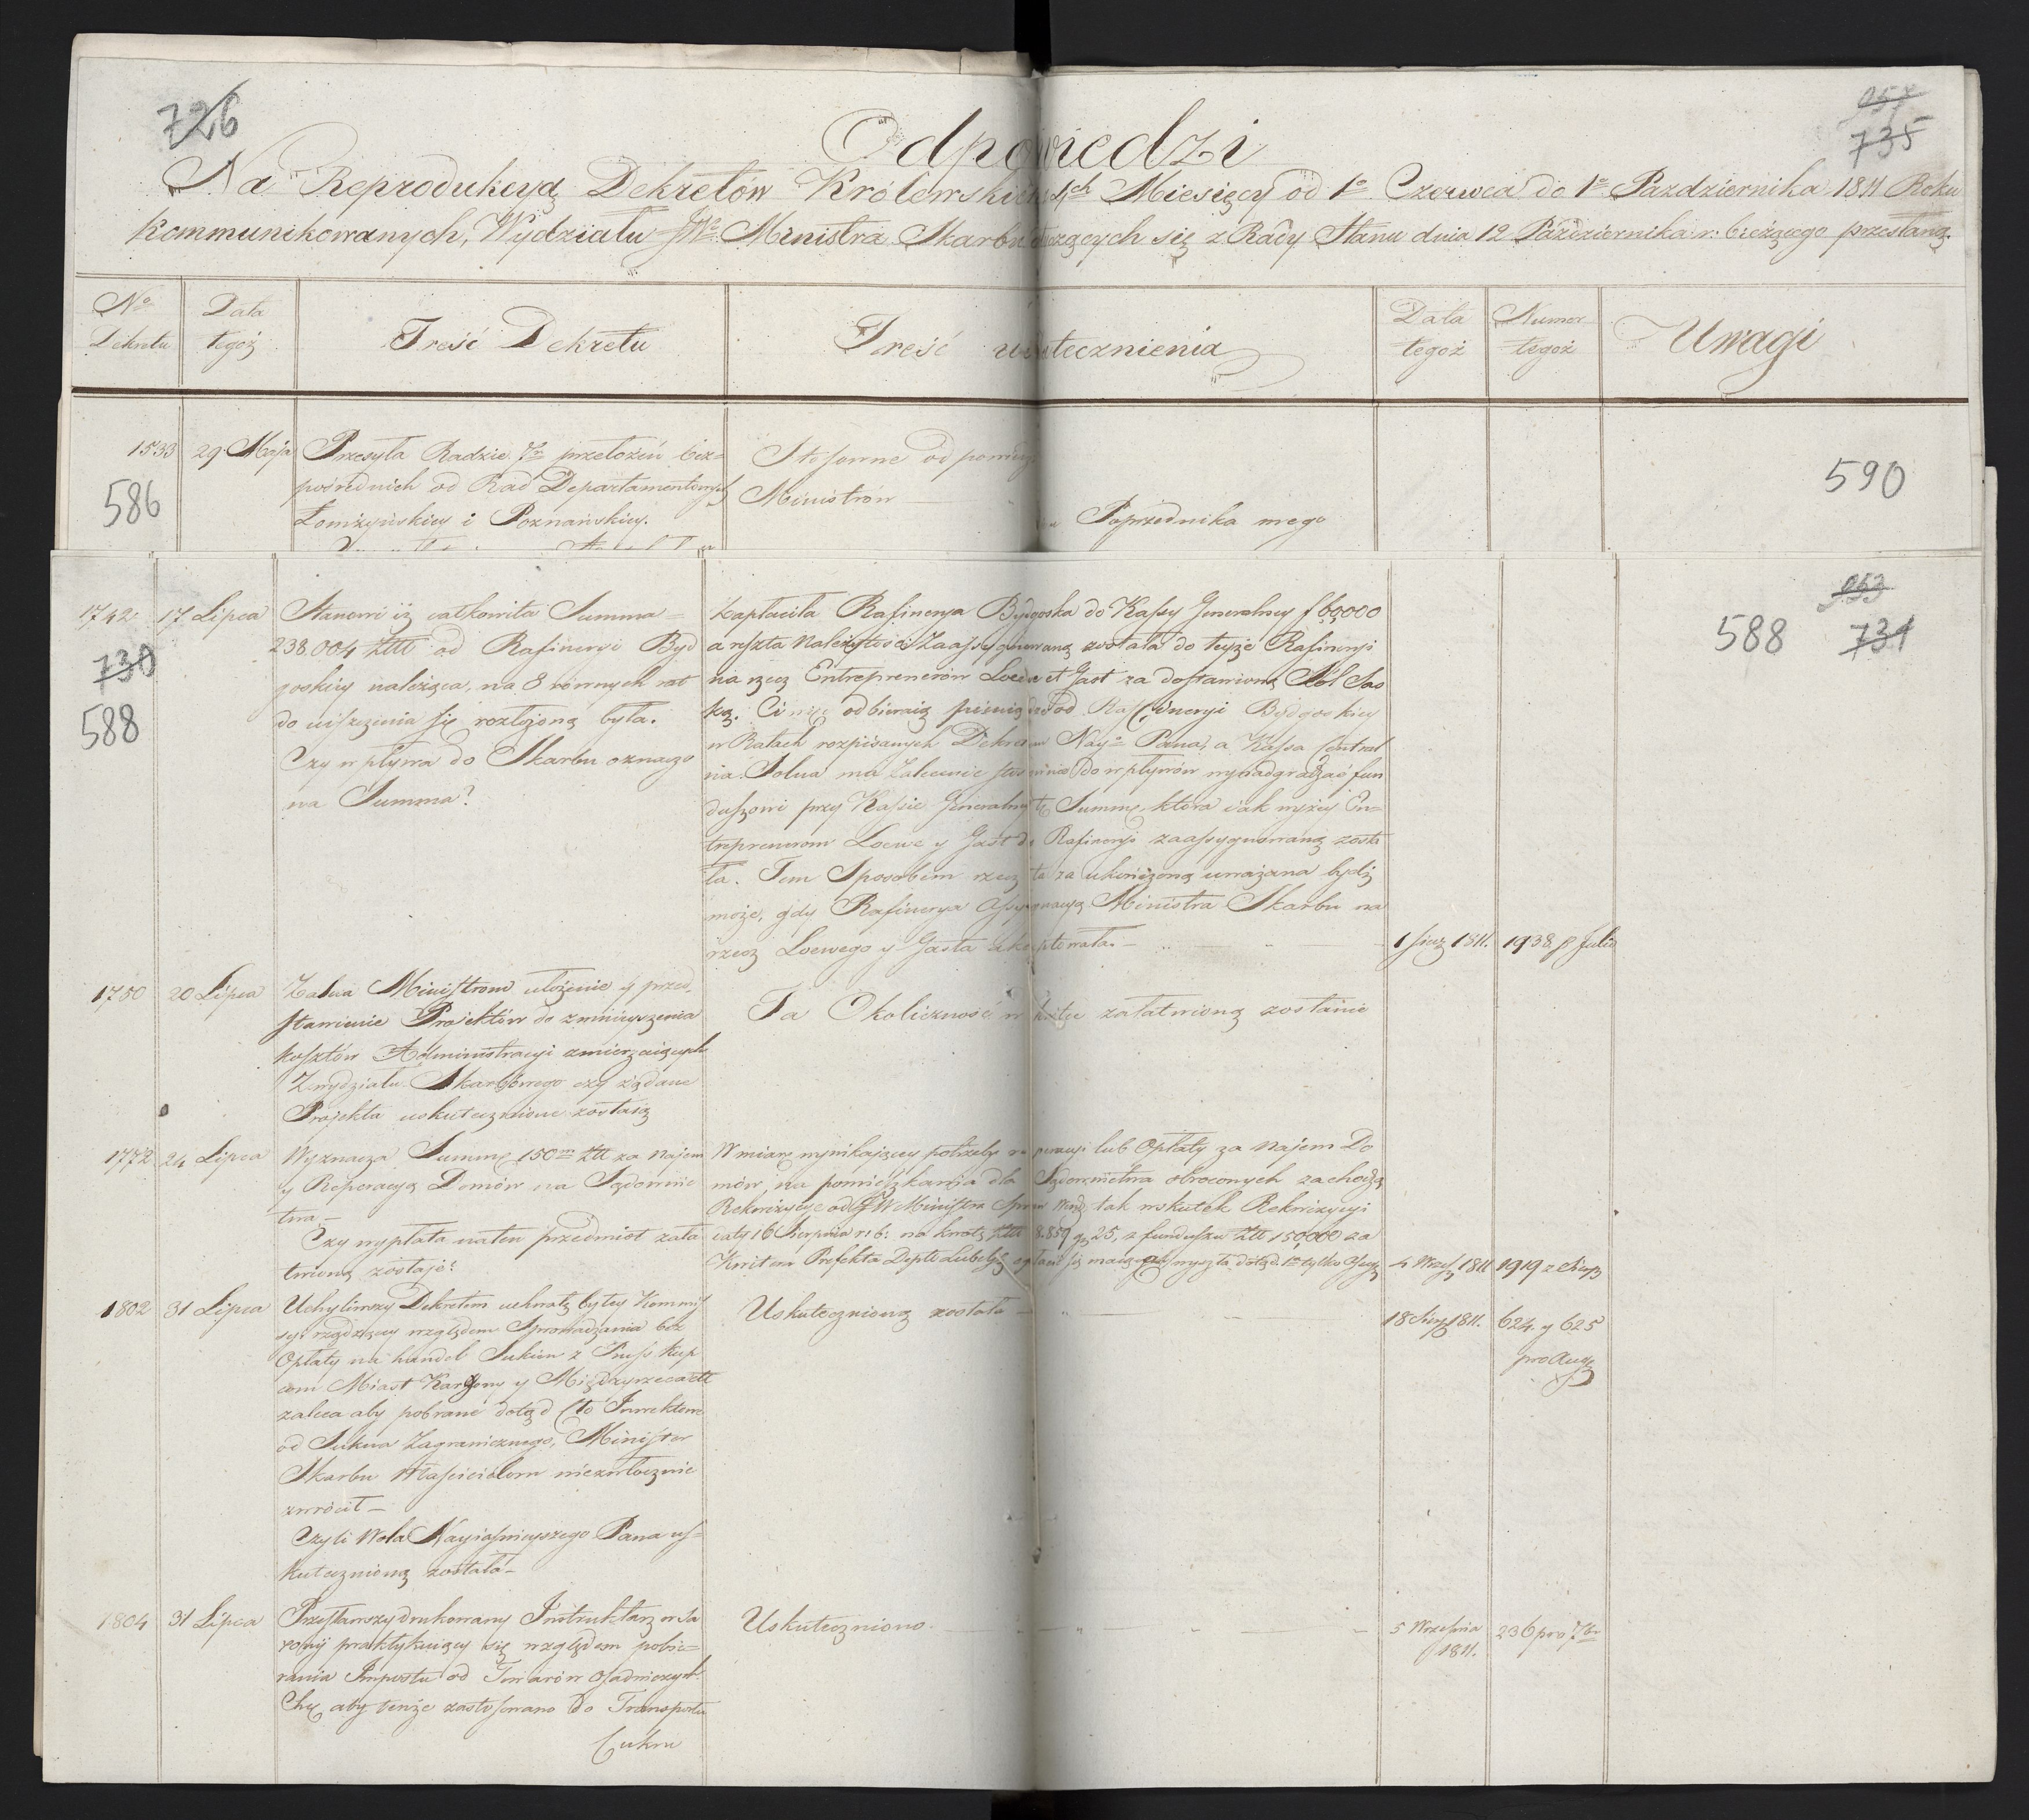 726
057
735
Odpowiedzi
Na Reprodukcyą Dekretów Królewskich 4ch Miesięcy od 1o Czerwca do 1o Pazdziernika 1811 Roku
kommunikowanych, Wydziału JWo Ministra Skarbu tyczących się z Rady Stanu dnia 12 Października r: bieżącego przesłaną.
No Dekretu
Data tegoż
Treść Dekretu
Treść uskutecznienia
Data tegoż
Numer tegoż
Uwagi
1533 29 Maja
Przesyła Radzie przełożeń bez=
pośrednich od Rad Departamentowych
Łomżyńskiey i Poznańskiey.
Stosowne odpowiedzi
Ministrów
Poprzednika mego
586
590
1742. 17 Lipca
730
588
Stanowi iż całkowita Summa =
238.004 Złłł od Rafineryi Byd
goskiey należąca, na 8 równych rat
do uiszczenia się rozłożoną była.
Czy wpływa do Skarbu oznaczo
na Summa?
Zapłaciła Rafinerya Bydgoska do Kassy Generalney f 60,000
a reszta Należytości Zaassygnowaną została do teyże Rafineryi
na rzecz Entreprenerów Loewe et Gast za dostawioną Sól Sas
ką. Ci więc odbieraią pieniądze od Rafineryi Bydgoskiey
w Ratach rozpisanych Dekretem Nayo Pana, a Kassa Central
na Solna ma Zalecenie stosownie do wpływów wynadgradzać fun
duszowi przy Kassie Generalney tę Summę, która iak wyżey En=
treprenerom Loewe y Gast do Rafineryi zaassygnowaną zosta
ła. Tem Sposobem rzecz ta za ukończoną uważana bydź
może, gdy Rafinerya Assygnacyą Ministra Skarbu na
rzecz Loewego y Gasta akceptowała. —
1811. 1938 p Julio
053
588 731
1750 20 Lipca
Zaleca Ministrom ułożenie y przed=
stawienie Projektów do zmnieyszenia
kosztów Administracyi zmierzaiących
Z wydziału Skarbowego czy żądane
Projekta uskutecznione zostaią
Ta Okoliczność w krótce załatwioną zostanie
1772 24 Lipca
Wyznacza Summę 150m Złł za Najem
y Reperacyą Domów na Sądownic
twa —
Czy wypłata na ten przedmiot zała
twioną zostaje?
W miarę wynikającey potrzeby reperacyi lub Opłaty za Najem Do
mów, na pomieszkania dla Sądownictwa obróconych zachodzą
Rekwizycye od JW Ministra Spraw Wewn: tak wskutek Rekwizycyi
daty 16 Sierpnia r: b: na kwotę Złłł 8.859 g 25, z funduszu Złł 150,000 za
Kwitem Prefekta Deptu Lubels
4 Wrześ 1811 1919 z Sierp
1802 31 Lipca
Uchyliwszy Dekretem uchwałę byłey Kommis
syi rządzącey względem Sprowadzania bez
Opłaty na handel Sukien z Pruss kup
com Miast Kargowy y Międzyrzecza
zaleca aby pobrane dotąd Cło
od Sukna Zagranicznego, Minister
Skarbu Właścicielom niezwłocznie
zwrócił —
Czyli Wola Nayiaśnieyszego Pana us=
kutecznioną została —
Uskutecznioną została —
18 Sierp 1811. 624. y 625
pro Aug
1804 31 Lipca
Przesławszy drukowany Instruktarz w Sa
xonij praktykuiący się względem pobie=
rania Impostu od Towarów Osadniczych
Chce aby tenże zastosowano do Transportu
Cukru
Uskuteczniono.
5 Września 236 pro 7br
1811.